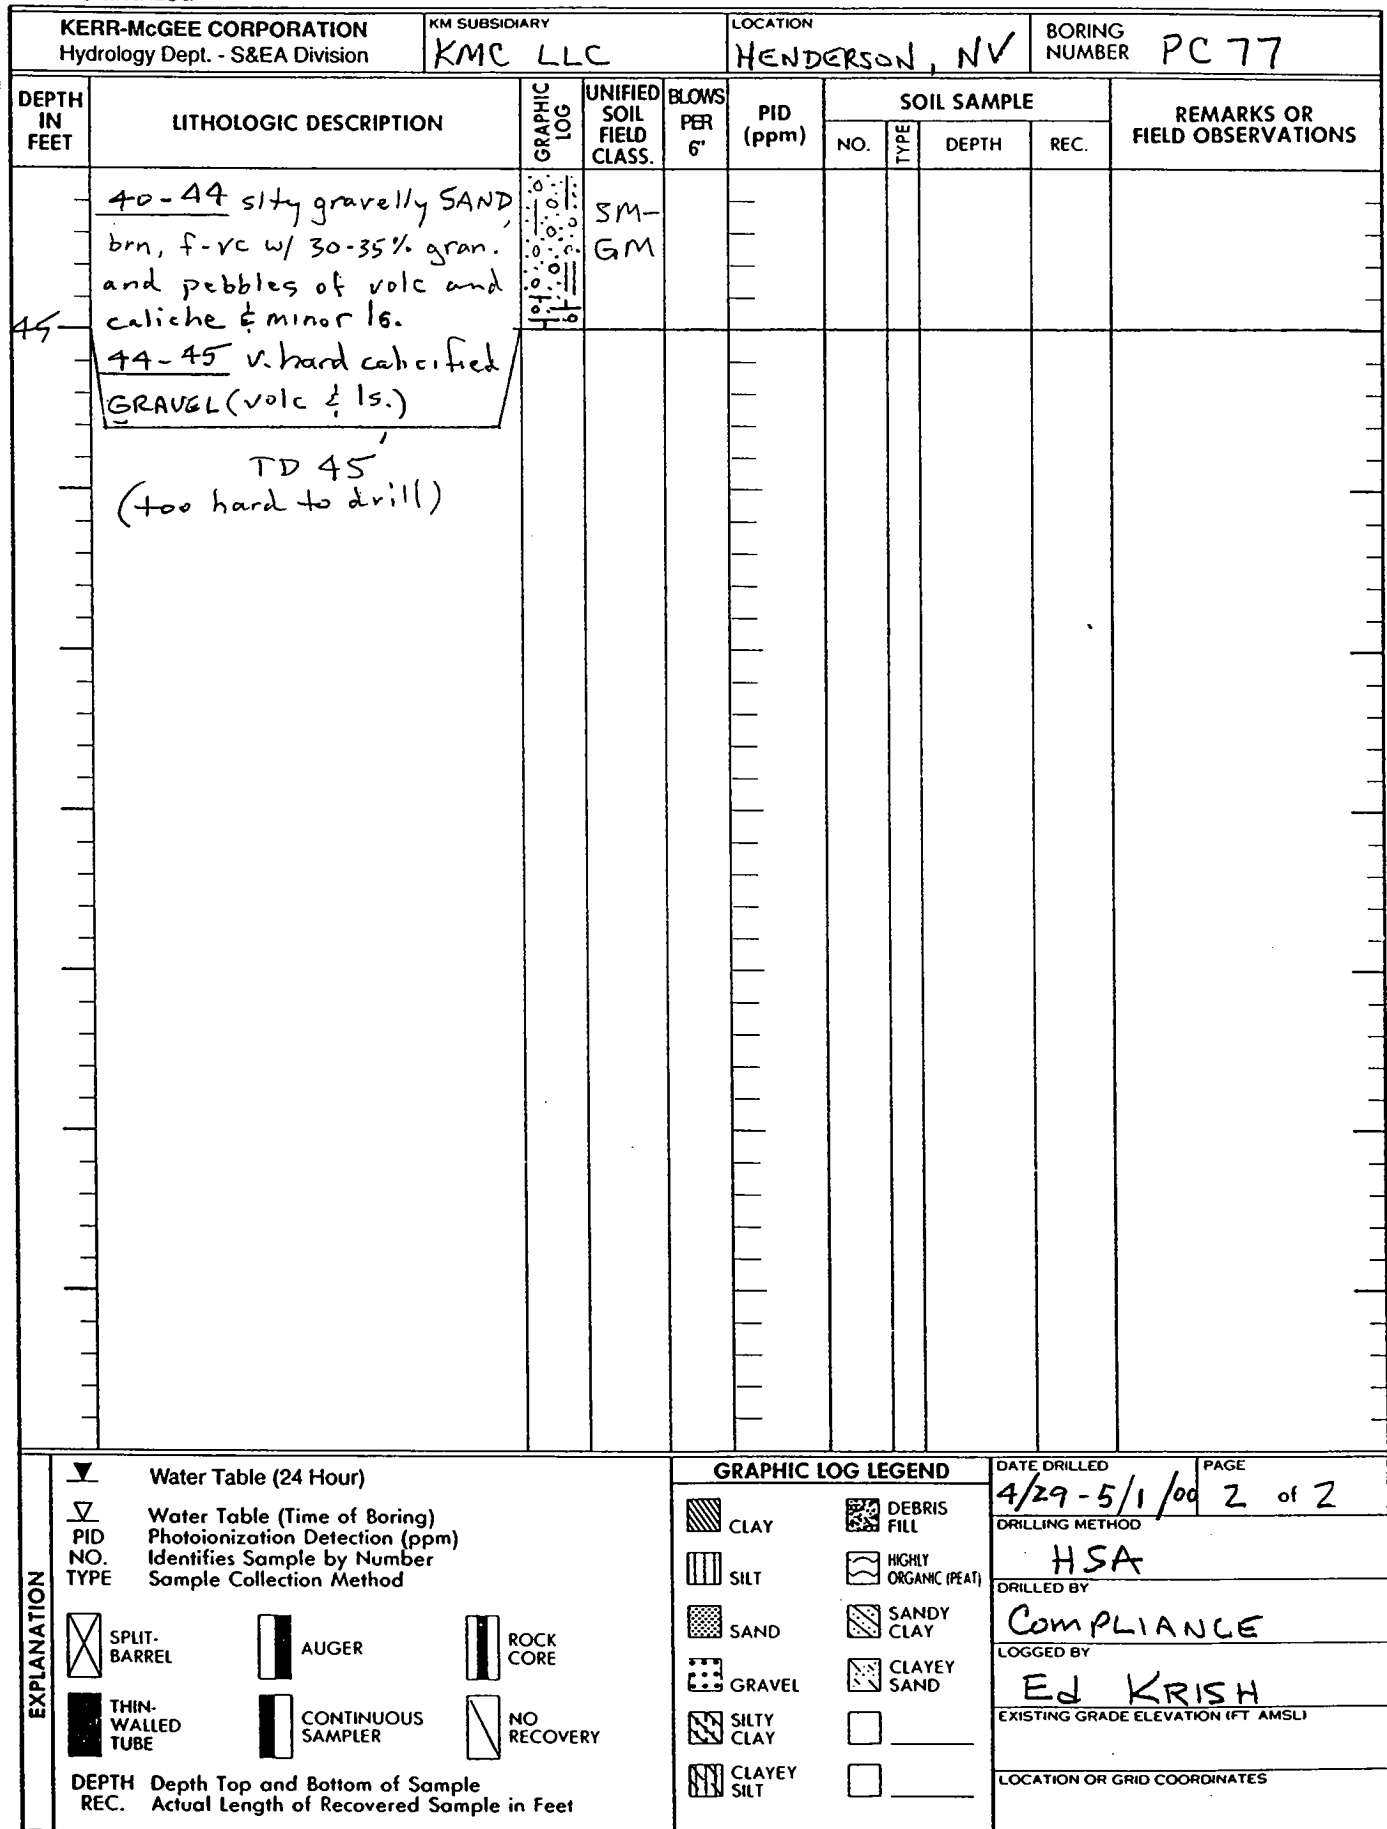 KERR-McGEE CORPORATION
Hydrology Dept. - S&EA Division
KM SUBSIDIARY
KMC LLC
LOCATION
HENDERSON, NV
BORING NUMBER PC 77
DEPTH IN FEET
LITHOLOGIC DESCRIPTION
GRAPHIC LOG
UNIFIED SOIL FIELD CLASS.
BLOWS PER 6"
PID (ppm)
SOIL SAMPLE
NO.
TYPE
DEPTH
REC.
REMARKS OR FIELD OBSERVATIONS
40-44 slty gravelly SAND,
brn, f-vc w/ 30-35% gran.
and pebbles of volc and
caliche & minor ls.
SM-
GM
45
44-45 v. hard calcified
GRAVEL (volc & ls.)
TD 45'
(too hard to drill)
EXPLANATION
Water Table (24 Hour)
Water Table (Time of Boring)
PID Photoionization Detection (ppm)
NO. Identifies Sample by Number
TYPE Sample Collection Method
SPLIT-BARREL
AUGER
ROCK CORE
THIN-WALLED TUBE
CONTINUOUS SAMPLER
NO RECOVERY
DEPTH Depth Top and Bottom of Sample
REC. Actual Length of Recovered Sample in Feet
GRAPHIC LOG LEGEND
CLAY
DEBRIS FILL
SILT
HIGHLY ORGANIC (PEAT)
SAND
SANDY CLAY
GRAVEL
CLAYEY SAND
SILTY CLAY
CLAYEY SILT
DATE DRILLED
4/29 - 5/1/00
PAGE
2 of 2
DRILLING METHOD
HSA
DRILLED BY
COMPLIANCE
LOGGED BY
Ed KRISH
EXISTING GRADE ELEVATION (FT AMSL)
LOCATION OR GRID COORDINATES